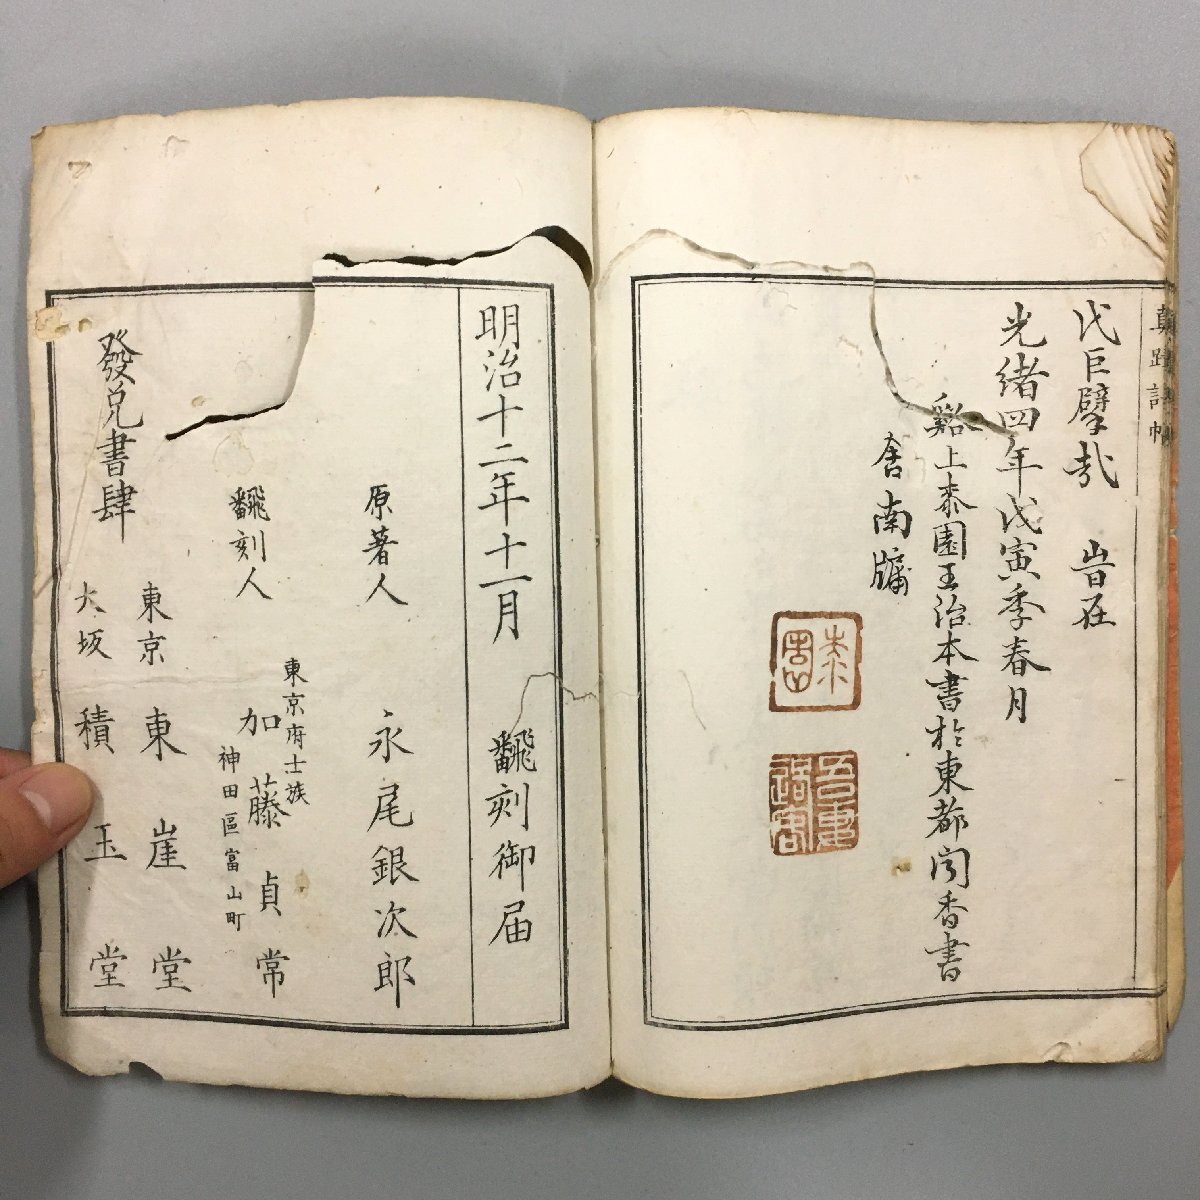 代巨擘哉　旹在
光緒四年戊寅季春月
谿上桼園王治本書於東都聞香書
舍南牖
桼園
明治十二年十一月　飜刻御届
原著人　永尾銀次郎
東京府士族
飜刻人　加藤貞常
神田區富山町
發兌書肆
東京　東崖堂
大坂　積玉堂